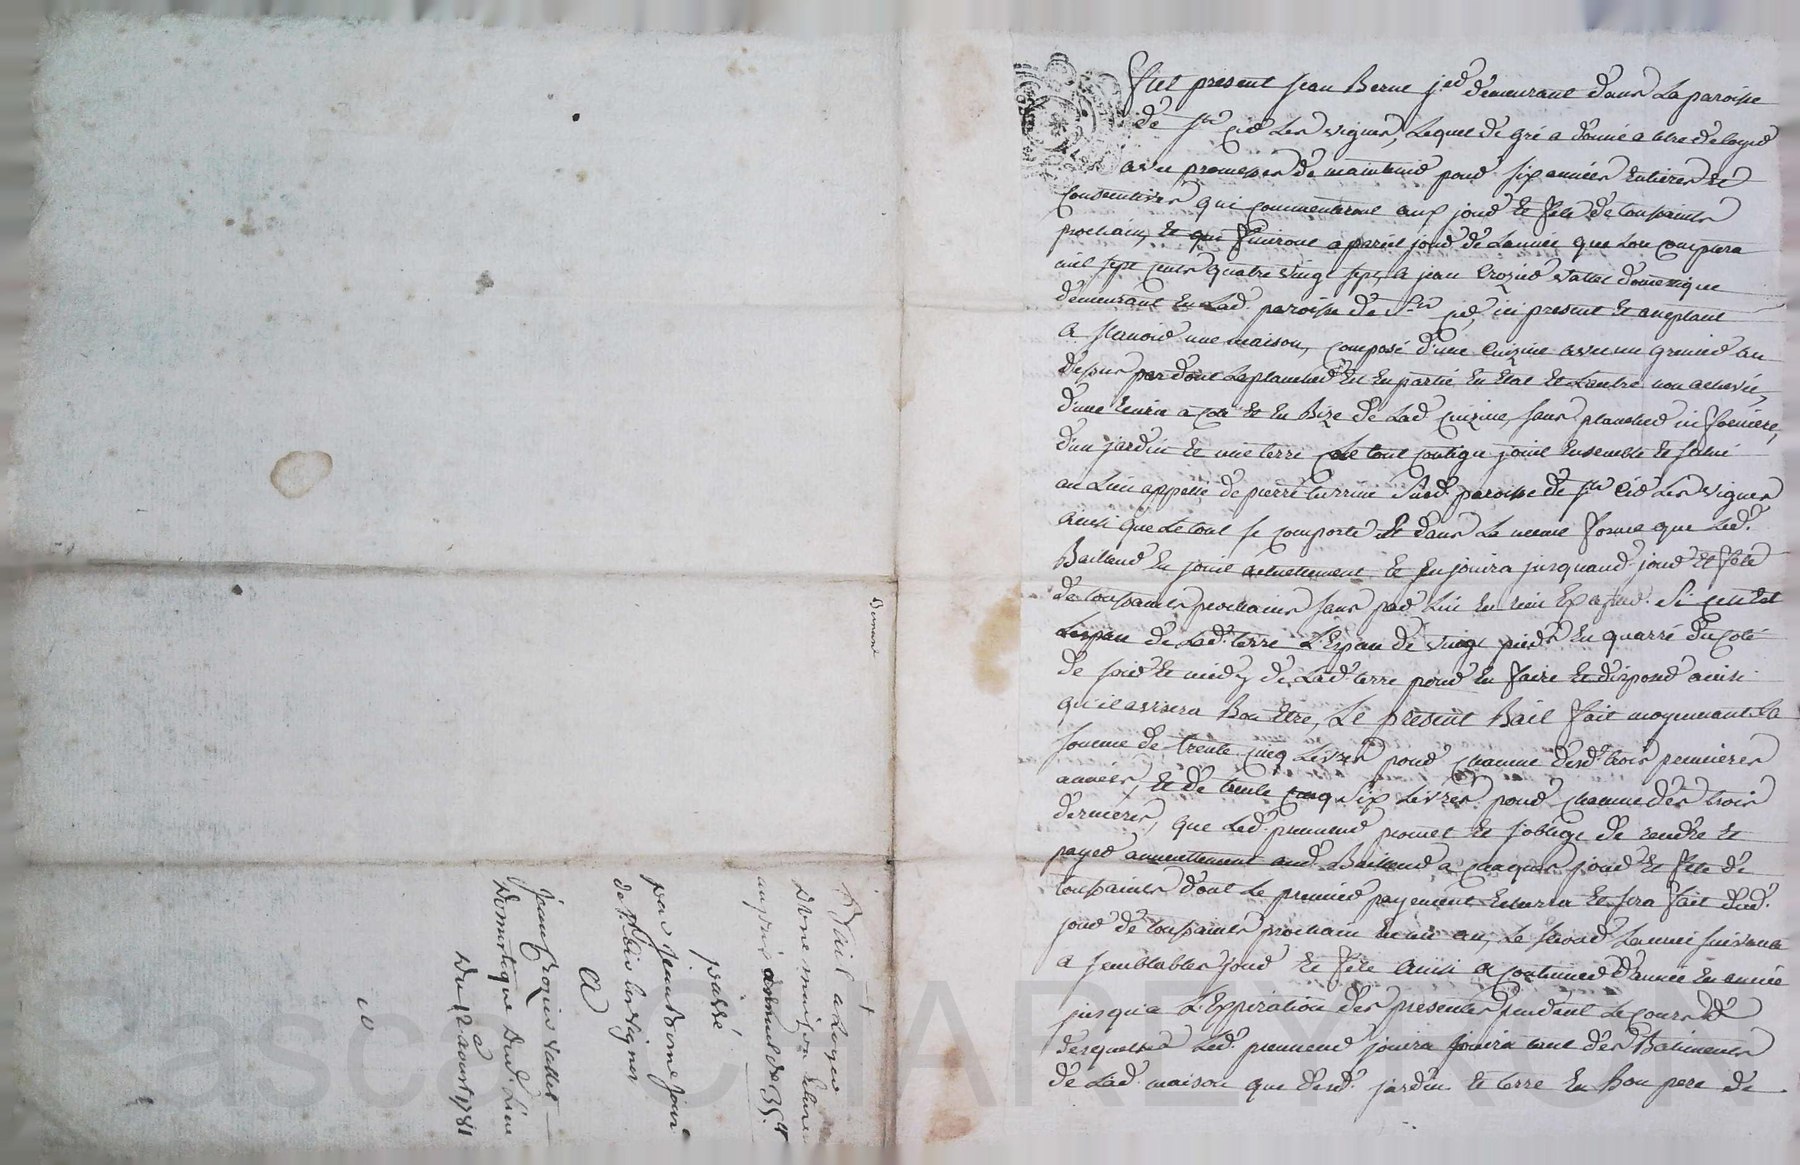 Fut present Jean Berne jer demeurant dans La paroisse
de St Cir Les vignes, Lequel de gré a donné a titre de loyer
avec promesses de maintenir pour six années Entieres Et
Consecutives qui commenceront aux jour Et fete de toussaints
prochain, Et qui finiront a pareil jour de L'année que Lon comptera
mil sept cens quatre vingt sept, a jean Crozier vallet domestique
demeurant En Lad. paroisse de St Cir, ici present Et acceptant
a scavoir une maison, composé d'une Cuizine avec un grenier au
dessus dont Le plancher Est En partie En Etat Et L'autre non achevée,
d'une Ecurie a coté Et En Bize de Lad. Cuizine, sans plancher ni
d'un jardin Et une terre Le tout contigu joint Ensemble Et situé
au Lieu appellé de pierre Susd. paroisse de St Cir Les vignes
ainsi que Le tout se comporte Et dans La meme forme que Led.
Bailleur En jouit actuellement, Et En jouira jusquaud. jour Et fete
de toussaints prochains sans par Lui En rien Si ce n'est
de Lad. terre L'Espace de vingt pieds En quarré du coté
de soir Et midy de Lad. terre pour En faire Et disposer ainsi
qu'il avisera Bon Etre, Le présent Bail fait moyennant La
somme de trente cinq Livres pour chacune desd. trois premieres
années, Et de trente six Livres pour chacune des trois
dernieres, que Led. preneur promet Et s'oblige de rendre Et
payer annuellement aud. Bailleur a chaque jour Et fete de
toussaints dont Le premier payement Echerra Et sera fait dud.
jour de toussaints prochain En un an, Le second L'année suivante
a semblables jour Et fete Ainsi a continuer d'année En année
jusqu'a L'Expiration des presentes pendant Le cours
desquelles Led. preneur jouira tant des Batiments
de Lad. maison que desd. jardin Et terre En bon pere de
Bail a Loyer
D'une maison
au prix annuel de 35 ll
passé
par Jean Berne
de St Cir les vignes
A
Jean Crozier vallet
Domestique Dud. Lieu
Du 12 aoust 1781